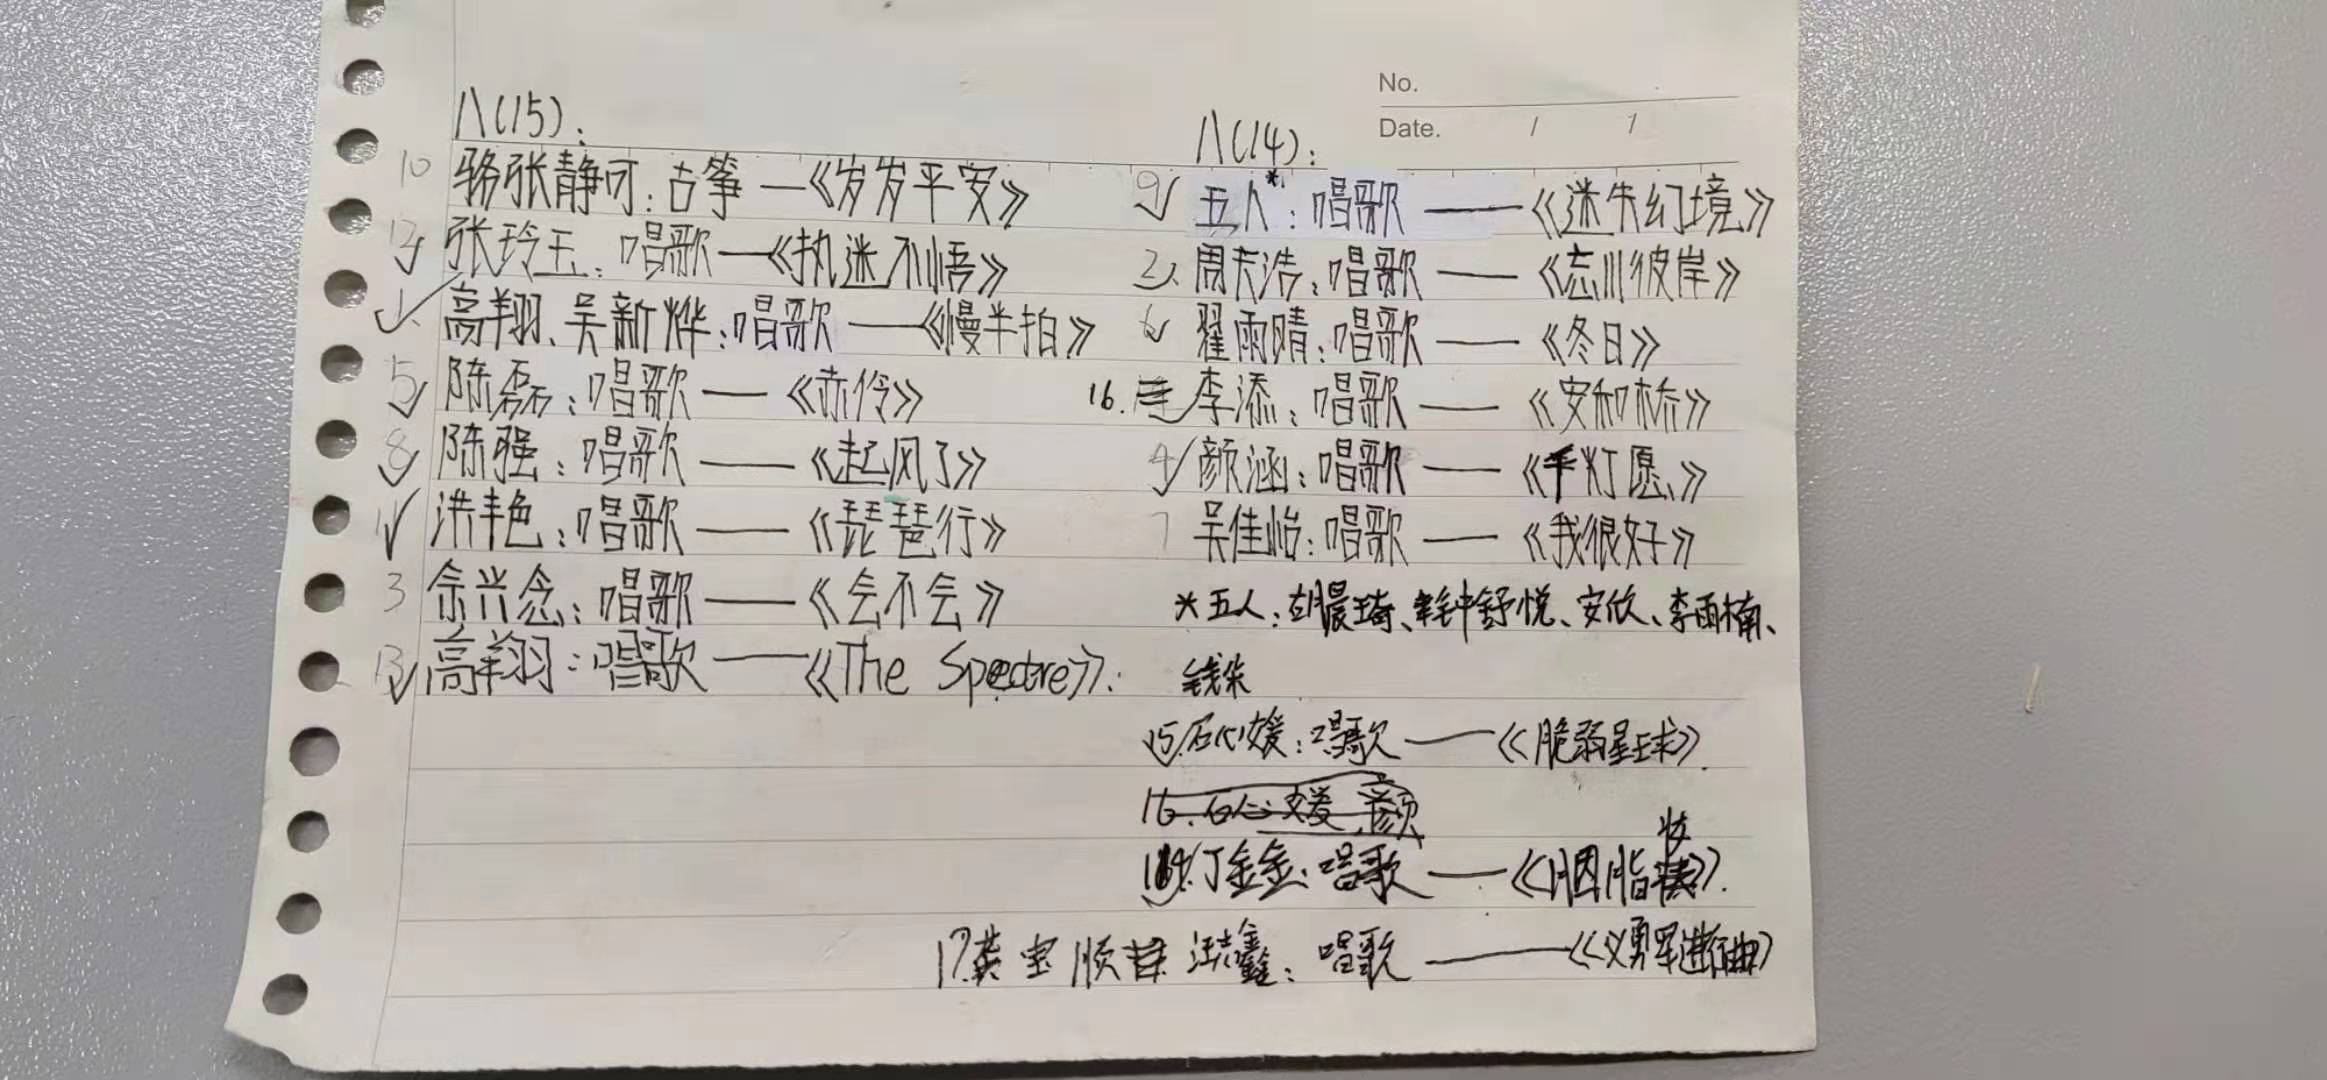 No.
Date. / /
八(15):
10 骆张静可:古筝—《岁岁平安》
12 张玲玉:唱歌—《执迷不悟》
1. 高翔、吴新烨:唱歌——《慢半拍》
5 陈磊:唱歌——《赤伶》
8 陈强:唱歌——《起风了》
洪丰色:唱歌——《琵琶行》
3 余兴念:唱歌——《会不会》
13 高翔:唱歌——《The Spectre》.
八(14):
9 五人*:唱歌——《迷失幻境》
2. 周天浩:唱歌——《忘川彼岸》
6 翟雨晴:唱歌——《冬日》
16. 李添:唱歌——《安和桥》
4 颜涵:唱歌——《千灯愿》
7 吴佳怡:唱歌——《我很好》
*五人:胡晨琦、钟舒悦、安欣、李雨楠、
钱朵
15.石心媛:唱歌——《脆弱星球》.
14.丁金金:唱歌——《胭脂妆》.
17.龚宝顺 汪志鑫:唱歌——《义勇军进行曲》